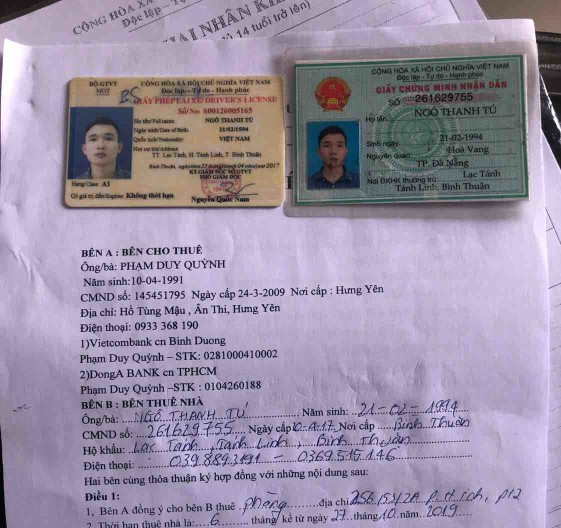 CỘNG HÒA XÃ
Độc lập - Tự
14 tuổi trở lên)
BỘ GTVT
MOT
CỘNG HÒA XÃ HỘI CHỦ NGHĨA VIỆT NAM
Độc lập - Tự do - Hạnh phúc
GIẤY PHÉP LÁI XE/DRIVER'S LICENSE
Số/No: 600126005165
Họ tên/Full name: NGÔ THANH TÚ
Ngày sinh/Date of Birth: 21/02/1994
Quốc tịch/Nationality: VIỆT NAM
Nơi cư trú/Address:
TT. Lạc Tánh, H. Tánh Linh, T. Bình Thuận
Hạng/Class: A1
Có giá trị đến/Expires: Không thời hạn
Nguyễn Quốc Nam
CỘNG HÒA XÃ HỘI CHỦ NGHĨA VIỆT NAM
Độc lập - Tự do - Hạnh phúc
GIẤY CHỨNG MINH NHÂN DÂN
SỐ 261629755
Họ tên: NGÔ THANH TÚ
Sinh ngày: 21-02-1994
Nguyên quán: Hoà Vang
TP. Đà Nẵng
Nơi ĐKHK thường trú: Lạc Tánh
Tánh Linh, Bình Thuận
BÊN A : BÊN CHO THUÊ
Ông/bà: PHẠM DUY QUỲNH
Năm sinh:10-04-1991
CMND số: 145451795 Ngày cấp 24-3-2009 Nơi cấp : Hưng Yên
Địa chỉ: Hồ Tùng Mậu , Ân Thi, Hưng Yên
Điện thoại: 0933 368 190
1)Vietcombank cn Bình Duong
Phạm Duy Quỳnh – STK: 0281000410002
2)DongA BANK cn TPHCM
Phạm Duy Quỳnh –STK : 0104260188
BÊN B : BÊN THUÊ NHÀ
Ông/bà: NGÔ THANH TÚ Năm sinh: 21-02-1994
CMND số: 261629755 Ngày cấp 10-4-17 Nơi cấp Bình Thuận
Hộ khẩu: Lạc Tánh, Tánh Linh, Bình Thuận
Điện thoại: 0398893191 - 0369515146
Hai bên cùng thỏa thuận ký hợp đồng với những nội dung sau:
Điều 1:
1, Bên A đồng ý cho bên B thuê phòng địa chỉ
2, Thời hạn thuê nhà là: 6 tháng kể từ ngày 27 tháng 10 năm 2019